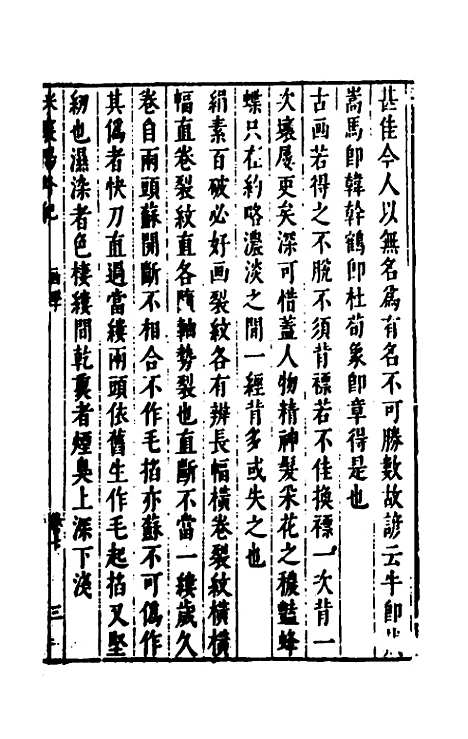 甚佳今人以無名爲有名不可勝數故諺云牛卽
嵩馬卽韓幹鶴卽杜荀象卽章得是也
古画若得之不脫不須背褾若不佳換褾一次背一
次壞屢更矣深可惜蓋人物精神髮朵花之穠豔蜂
蝶只在約略濃淡之間一經背多或失之也
絹素百破必好画裂紋各有辨長幅橫卷裂紋橫橫
幅直卷裂紋直各隨軸勢裂也直斷不當一縷歲久
卷自兩頭蘇開斷不相合不作毛掐亦蘇不可僞作
其僞者快刀直過當縷兩頭依舊生作毛起掐又堅
紉也濕染者色棲縷間乾熏者煙臭上深下淺
米襄陽外紀
画評
三